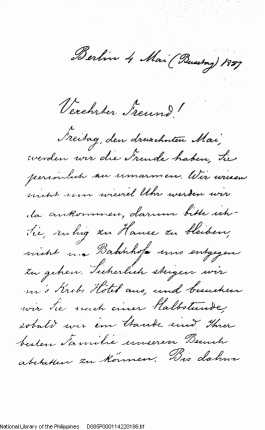 Berlin 4 Mai (Busstag) 1887
Verehrter Freund!
Freitag, den dreizehnten Mai,
werden wir die Freude haben, Sie
persönlich zu umarmen. Wir wissen
nicht um wieviel Uhr werden wir
da ankommen, darum bitte ich
Sie, ruhig zu Hause zu bleiben,
nicht im Bahnhofe uns entgegen
zu gehen. Sicherlich steigen wir
in's Krebs Hôtel aus, und besuchen
wir Sie nach einer Halbstunde,
sobald wir im Stande sind, Ihrer
besten Familie unseren Besuch
abstatten zu können. Bis dahin
National Library of the Philippines D085P000114220186.tif